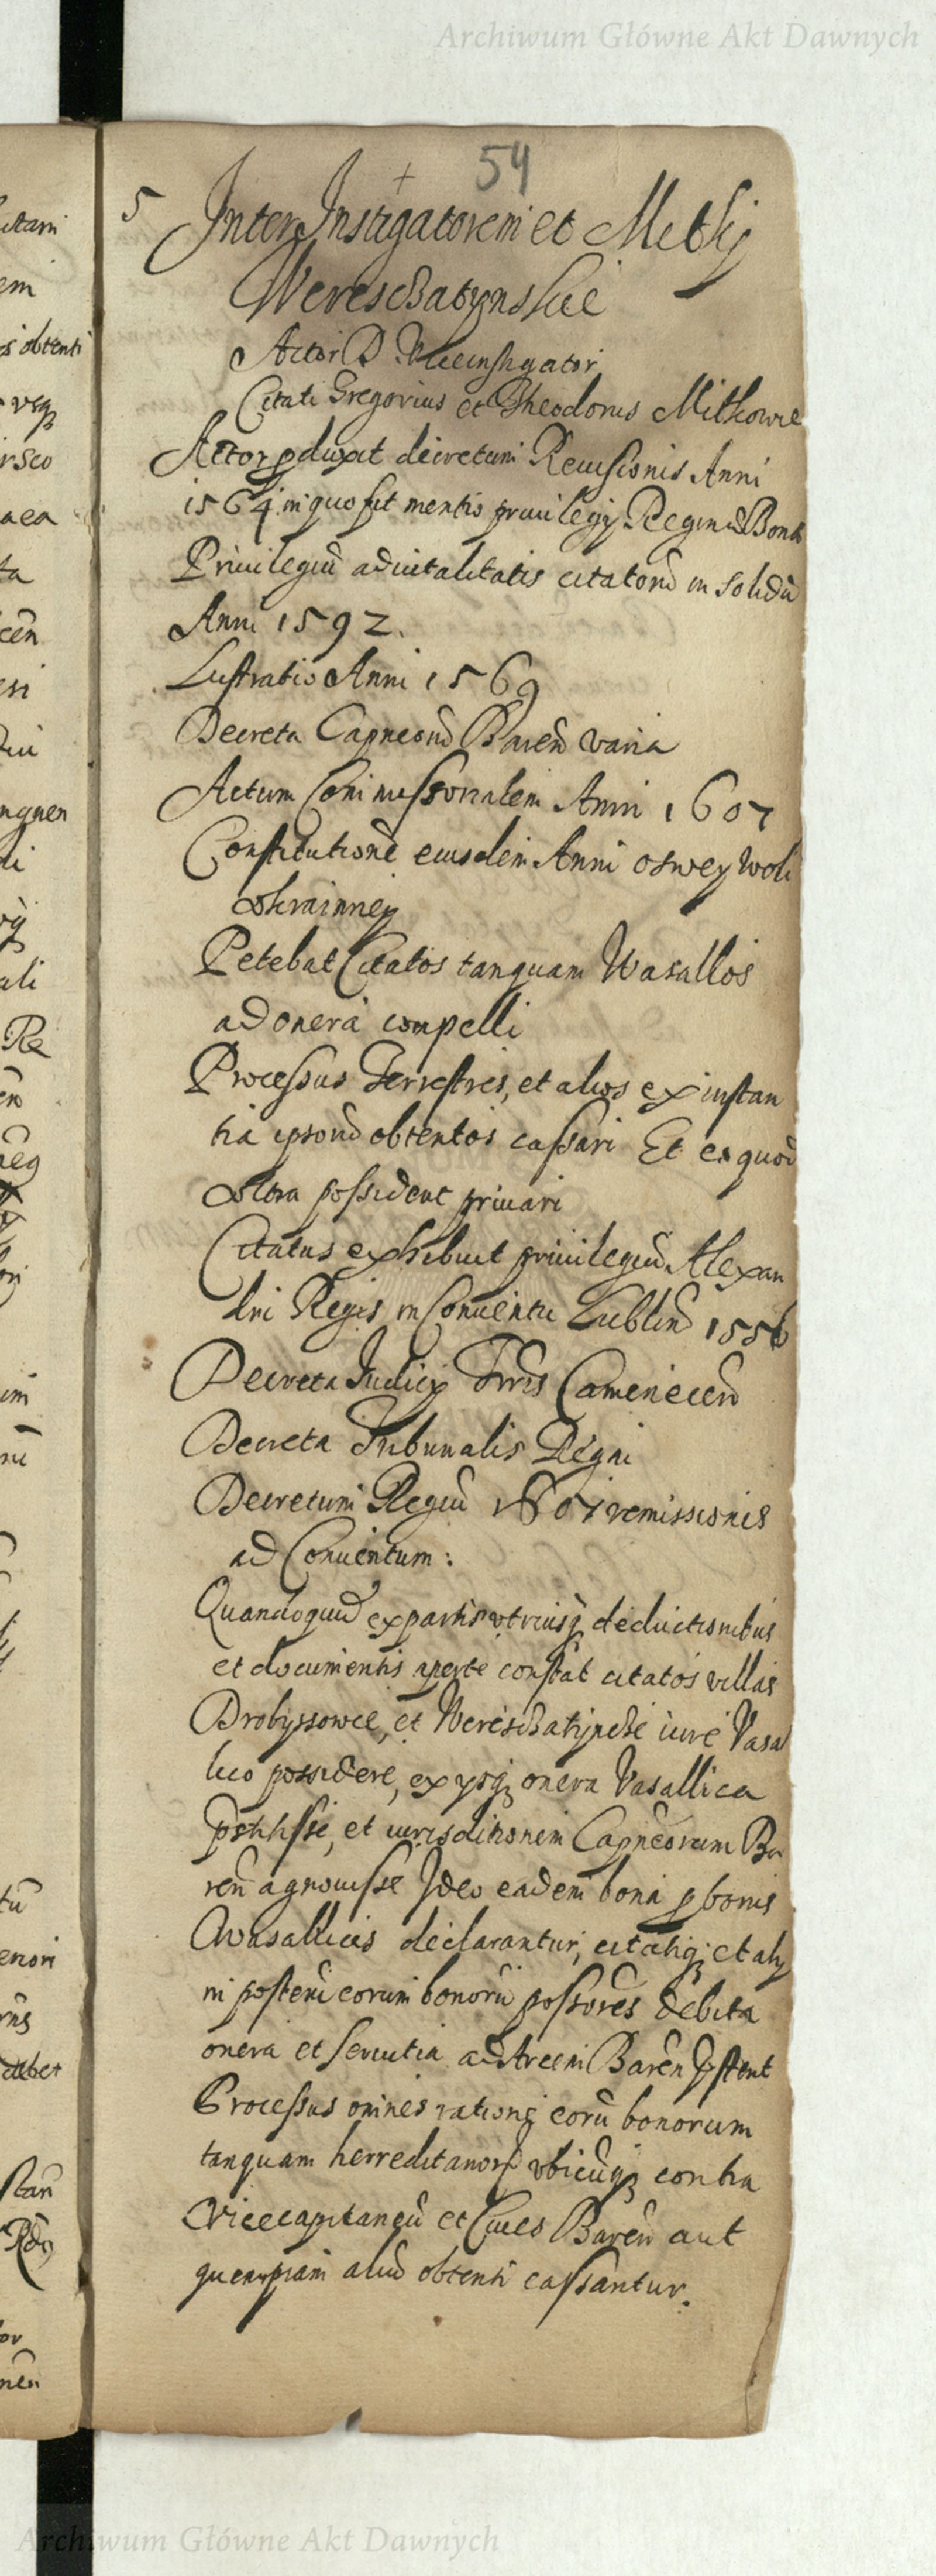 Archiwum Główne Akt Dawnych
54
5 Inter Instigatorem et
Actor D. Viceinstigator
Citati Gregorius et Theodorus Mitkowie
Actor pduxit decretum Reuisionis Anni
1564 in quo fit mentio priuilegij Reginae Bonae
Priuilegiū aduitalitatis citatorū in solidū
Anni 1592.
Lustratio Anni 1569
Decreta Capneorū Baren varia
Actum Commissorialem Anni 1607
Constitutionē eiusdem Anni o swey woli
Ukrainney
Petebat Citatos tanquam Wasallos
ad onera compelli
Processus Terrestres, et alios ex instan
tia ipsorū obtentos cassari Et ea quod
vltra possident priuari
Citatus exhibuit priuilegiū Alexan
dri Regis in Conuentu Lublin 1556
Decreta Iudicij Trris Camenecen
Decreta Tribunalis Regni
Decretum Regiū 1607 remissionis
ad Conuentum:
Quandoquid ex partis vtriusq deductionibus
et documentis aperte constat citatos villas
Drobyssowce, et Wereschatynche iure Vasa
lico possidere, ex ysq onera Vasallica
pstitisse, et iurisditionem Capneorum Ba
ren agnouisse Ideo eadem bona p bonis
Wasallicis declarantur, citatiq et alij
in posterū eorum bonorū possores debita
onera et seruitia ad Arcem Baren pstent
Processus omnes ratione eorū bonorum
tanquam herreditariorū vbicūq contra
Vicecapitaneū et Ciues Baren aut
quempiam aliū obtenti cassantur.
Archiwum Główne Akt Dawnych